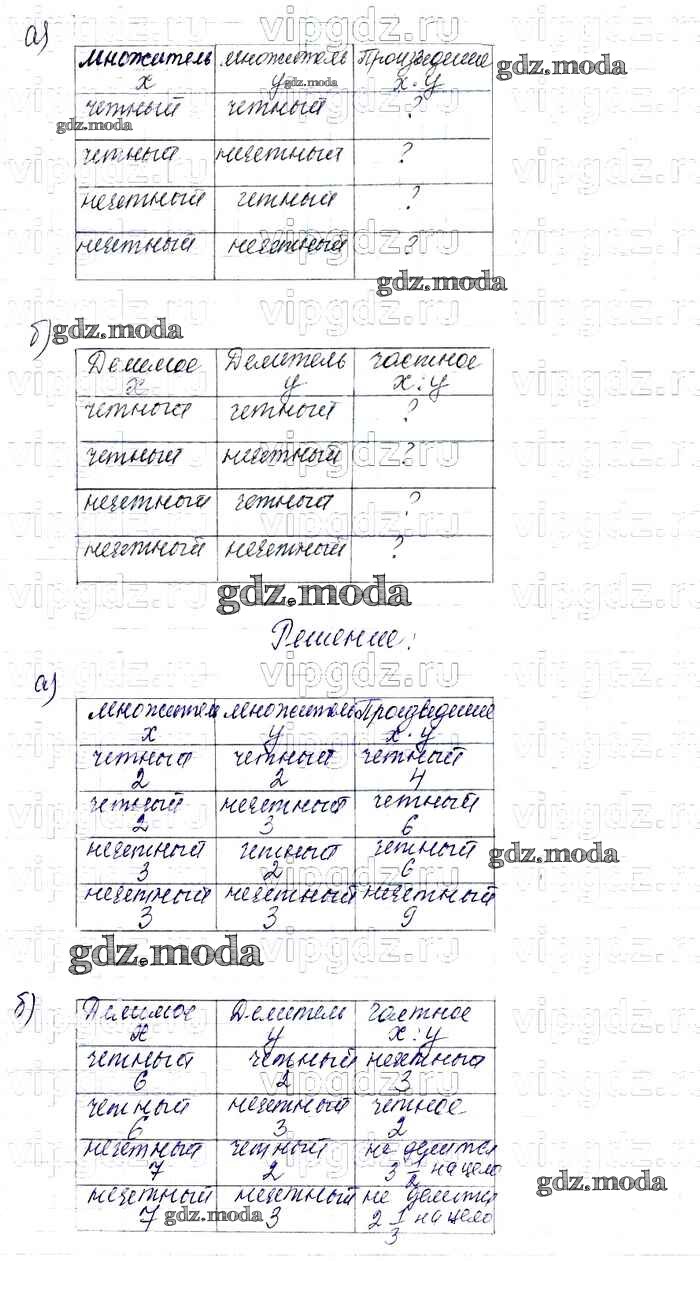 а)
множитель множитель Произведение
x y x · y
четный четный ?
четный нечетный ?
нечетный четный ?
нечетный нечетный ?
б)
Делимое Делитель частное
x y x : y
четный четный ?
четный нечетный ?
нечетный четный ?
нечетный нечетный ?
Решение:
а)
множитель множитель Произведение
x y x · y
четный четный четный
2 2 4
четный нечетный четный
2 3 6
нечетный четный четный
3 2 6
нечетный нечетный нечетный
3 3 9
б)
Делимое Делитель частное
x y x : y
четный четный нечетный
6 2 3
четный нечетный четное
6 3 2
нечетный четный не делится
7 2 3 1/2 нацело
нечетный нечетный не делится
7 3 2 1/3 нацело
gdz.moda
vipgdz.ru